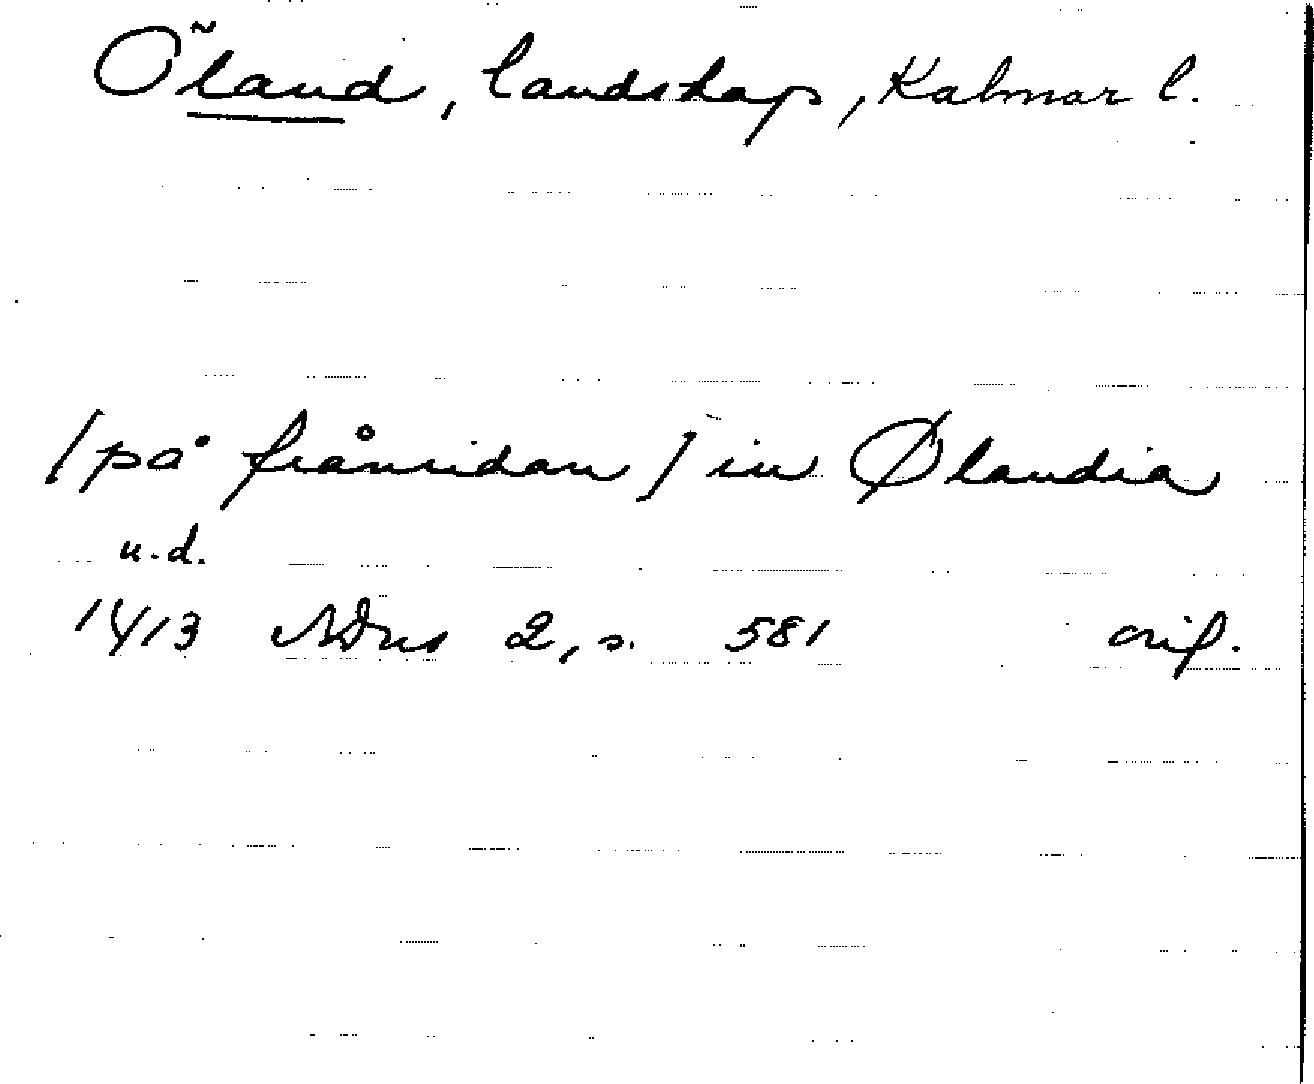 Öland, landskap, Kalmar l.
/på frånsidan/ in Ølandia
u.d.
1413 SDns 2, s. 581 orig.